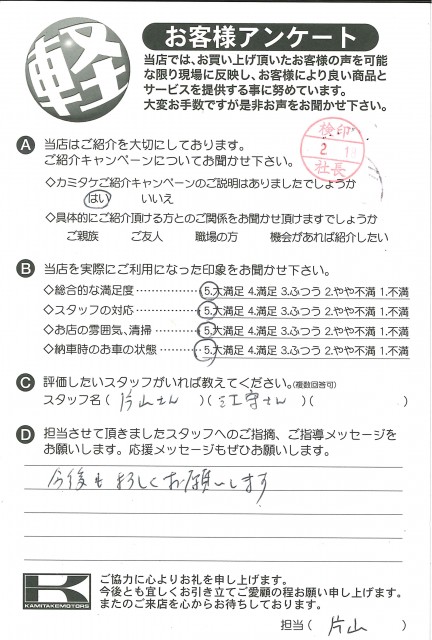 軽
お客様アンケート
当店では、お買い上げ頂いたお客様の声を可能
な限り現場に反映し、お客様により良い商品と
サービスを提供する事に努めています。
大変お手数ですが是非お声をお聞かせ下さい。
検印
2
社長
A 当店はご紹介を大切にしております。
ご紹介キャンペーンについてお聞かせ下さい。
◇カミタケご紹介キャンペーンのご説明はありましたでしょうか
はい いいえ
◇具体的にご紹介頂ける方とのご関係をお聞かせ頂けますでしょうか
ご親族 ご友人 職場の方 機会があれば紹介したい
B 当店を実際にご利用になった印象をお聞かせ下さい。
◇総合的な満足度……………5.大満足 4.満足 3.ふつう 2.やや不満 1.不満
◇スタッフの対応……………5.大満足 4.満足 3.ふつう 2.やや不満 1.不満
◇お店の雰囲気、清掃………5.大満足 4.満足 3.ふつう 2.やや不満 1.不満
◇納車時のお車の状態………5.大満足 4.満足 3.ふつう 2.やや不満 1.不満
C 評価したいスタッフがいれば教えてください。(複数回答可)
スタッフ名(片山さん)(江守さん)( )
D 担当させて頂きましたスタッフへのご指摘、ご指導メッセージを
お願いします。応援メッセージもぜひお願いします。
今後もよろしくお願いします
K
KAMITAKEMOTORS
ご協力に心よりお礼を申し上げます。
今後とも宜しくお引き立てご愛顧の程お願い申し上げます。
またのご来店を心からお待ちしております。
担当(片山)